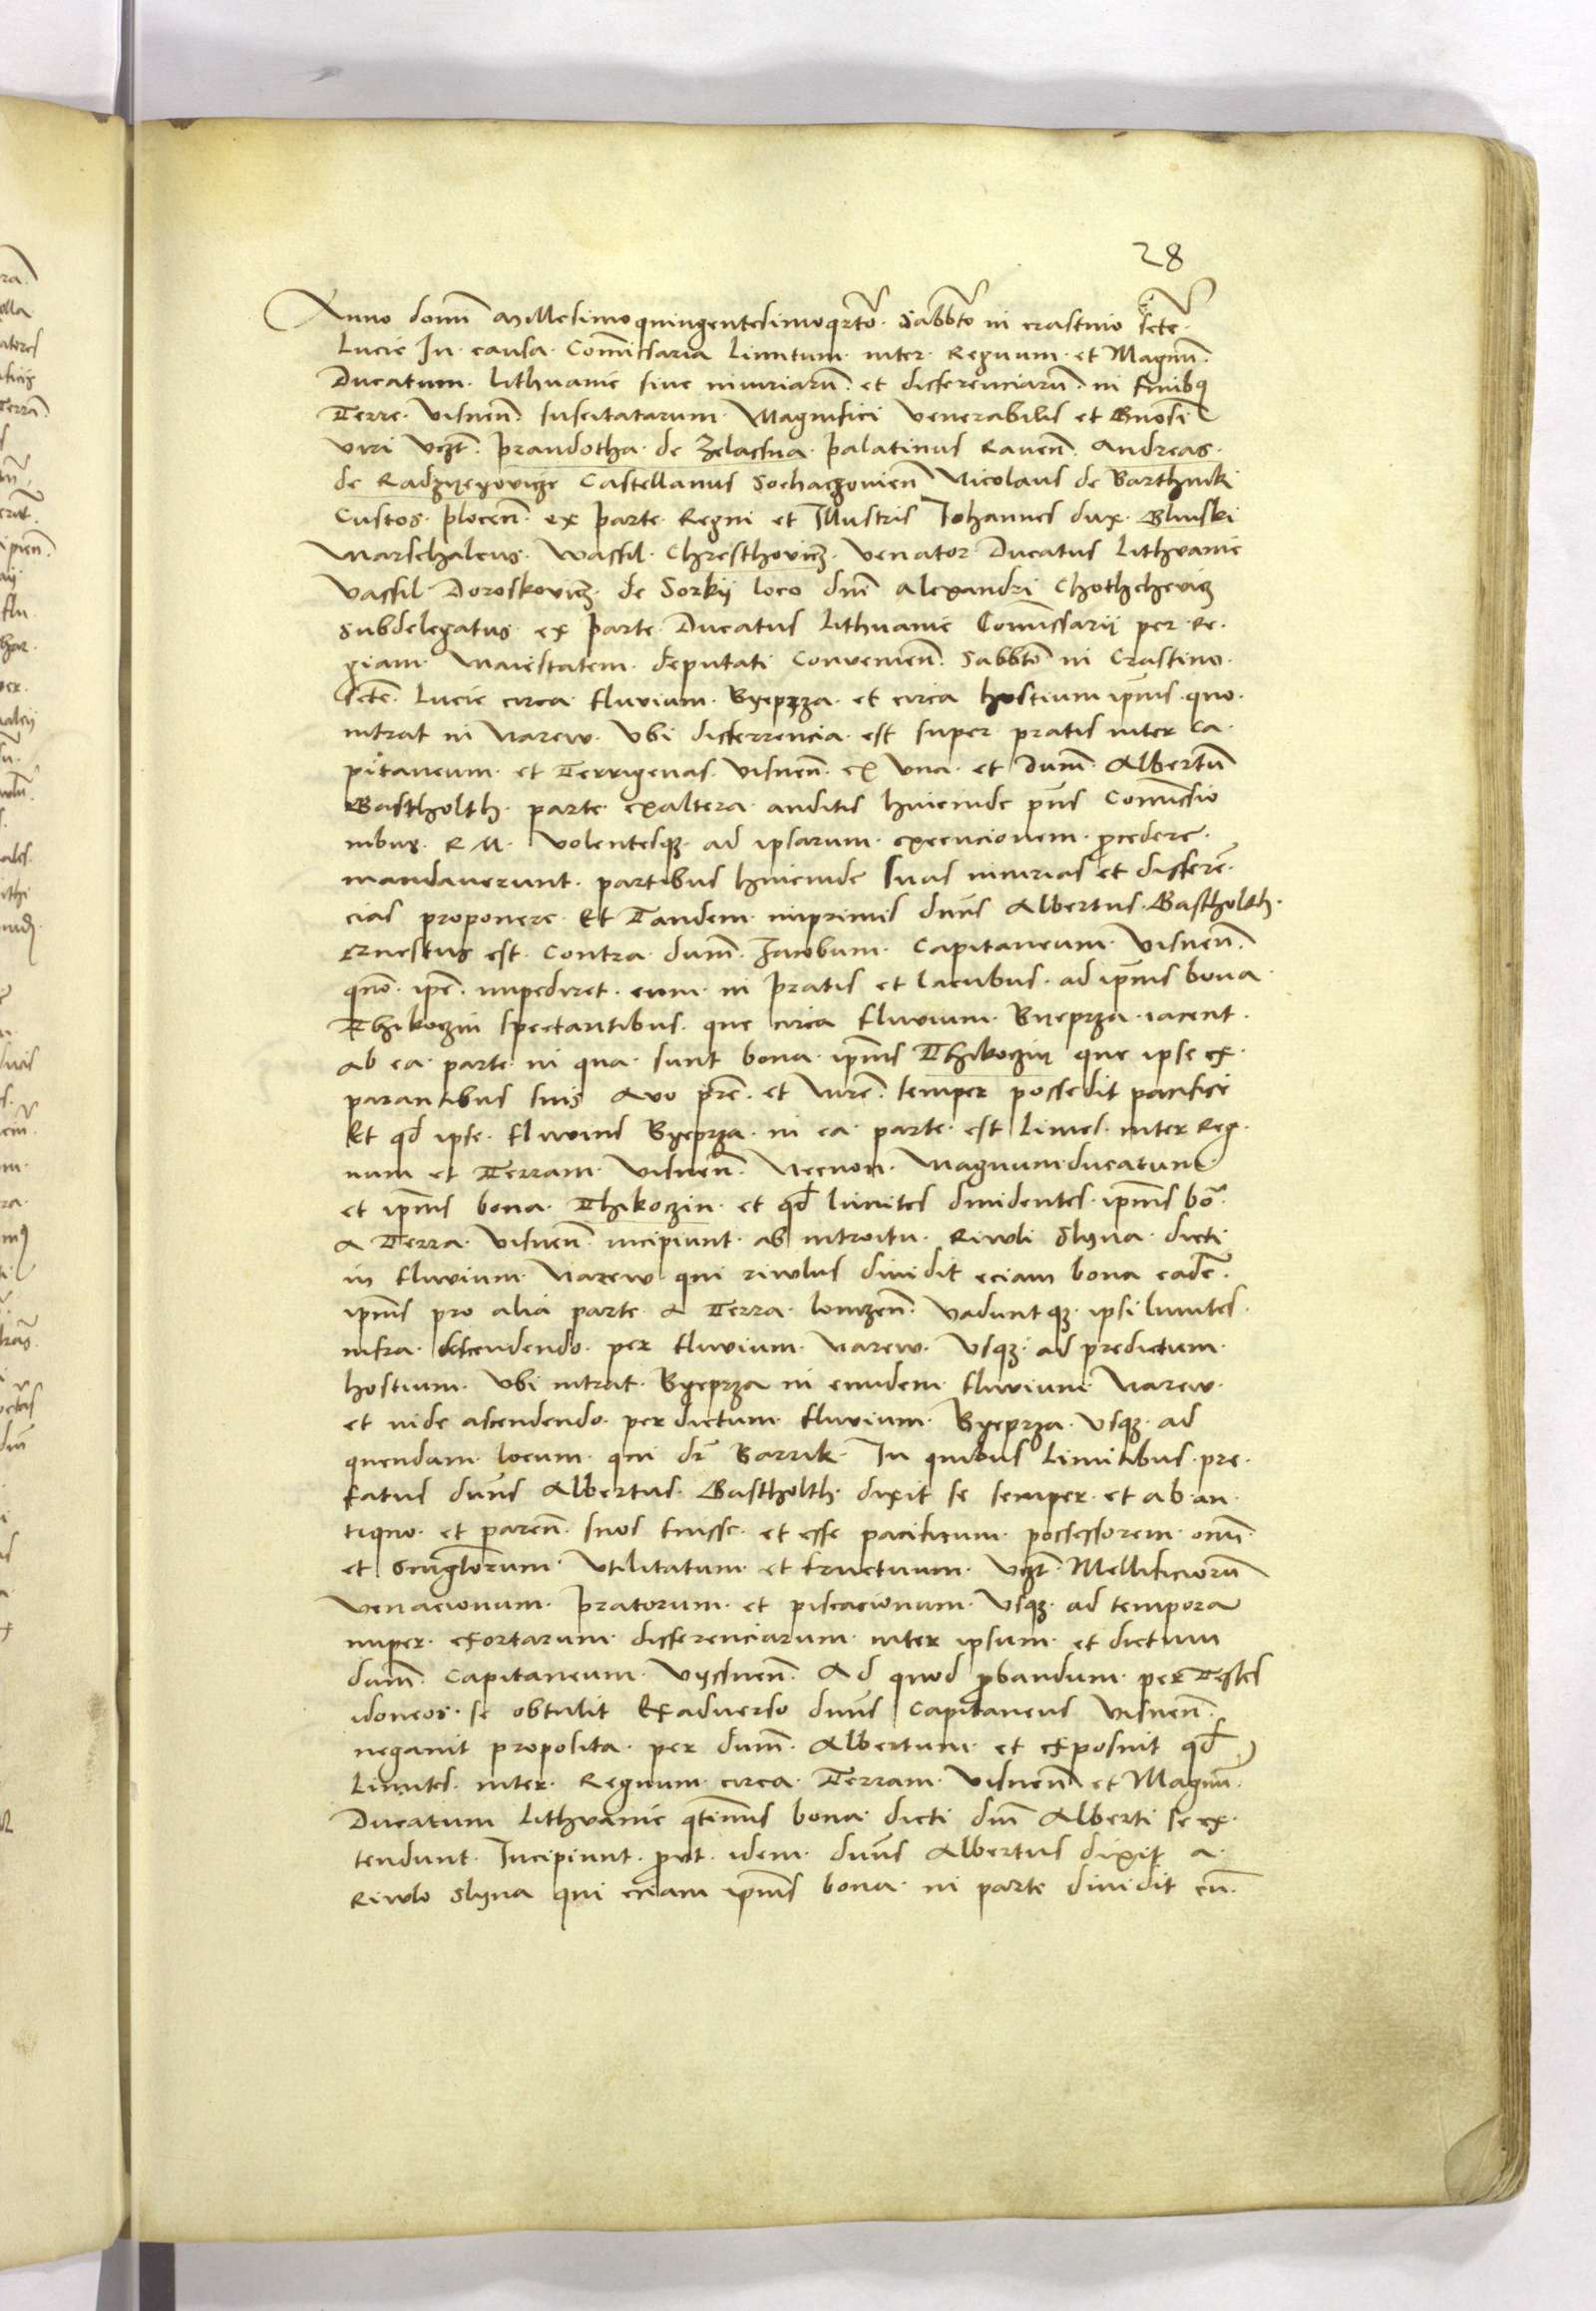 28
Anno domi millesimoquingentesimoqrto. Sabbto in crastino scte.
Lucie In causa Comissaria limitum inter Regnum et Magnu.
Ducatum lithuanie sive iniuriaru et differenciaru in finibq
Terre visnen suscitatarum Magnifici venerabilis et Gnosi
viri vczt. prandotha de zelassna palatinus Raven Andreas
de Radzyeyovicze Castellanus Sochaczovien Nicolaus de Barthniki
Custos plocen ex parte Regni et Illustris Johannes dux Glinski
Marschalcus Wassil Chresthovicz venator Ducatus Lithuanie
vassil Doroskovicz de Sorkij loco dni Alexandri Chothchevicz
subdelegatus ex parte Ducatus Lithuanie Comissarij per Re
giam Maiestatem deputati Convenien Sabbto in Crastino
scte Lucie circa fluvium Byeprza et circa hostium ipius quo
intrat in Narew Ubi differrencia est super pratis inter Ca
pitaneum et Terrigenas visnen ex una et dnum Albertum
Gastholth parte exaltera auditis hincinde pns Comissio
nibus R M volentesqz ad ipsarum execucionem pcedere
mandaverunt partibus hincinde suas iniurias et differe
cias proponere Et Tandem inprimis dnus Albertus Gastholth
qnestus est Contra dnum Jacobum Capitaneum visnen
quo ipe impediret eum in pratis et lacubus ad ipius bona
Thikoczin spectantibus que circa fluvium Byeprza iacent
ab ea parte in qua sunt bona ipius Thikoczin que ipse ex
parantibus suis Avo pre et mre semper possedit pacifice
Et qd ipse fluvius Byeprza in ea parte est limes inter Reg
num et Terram visnen Necnon Magnum ducatum
et ipius bona Thikoczin et qd limites dividentes ipius bo
a Terra visnen incipiunt ab introitu Rivuli Slyna dicti
in fluvium Narew qui rivulus dividit eciam bona eade
ipius pro alia parte a Terra lomzen vaduntqz ipsi limites
infra descendendo per fluvium Narew Usqz ad predictum
hostium Ubi intrat Byeprza in eundem fluvium Narew
et inde ascendendo per dictum fluvium Byeprza Usqz ad
quendam locum qui dr Barrik In quibus limitibus pre
fatus dnus Albertus Gastholth dixit se semper et ab an
tiquo et paren suos fuisse et esse pacificum possessorem oium
et singlorum utilitatum et fructuum vczt Mellificioru
venacionum pratorum et piscacionum Usqz ad tempora
nuper exortarum differenciarum inter ipsum et dictum
dnum Capitaneum vyssnen Ad quod pbandum per Testes
idoneos se obtulit Exadverso dnus Capitaneus visnen
negavit proposita per dnum Albertum et exposuit qd
Limites inter Regnum circa Terram visnen et Magnu
Ducatum Lithuanie qtinus bona dicti dni Alberti se ex
tendunt Incipiunt put idem dnus Albertus dixit a
Rivulo Slyna qui eciam ipius bona in parte dividit eu